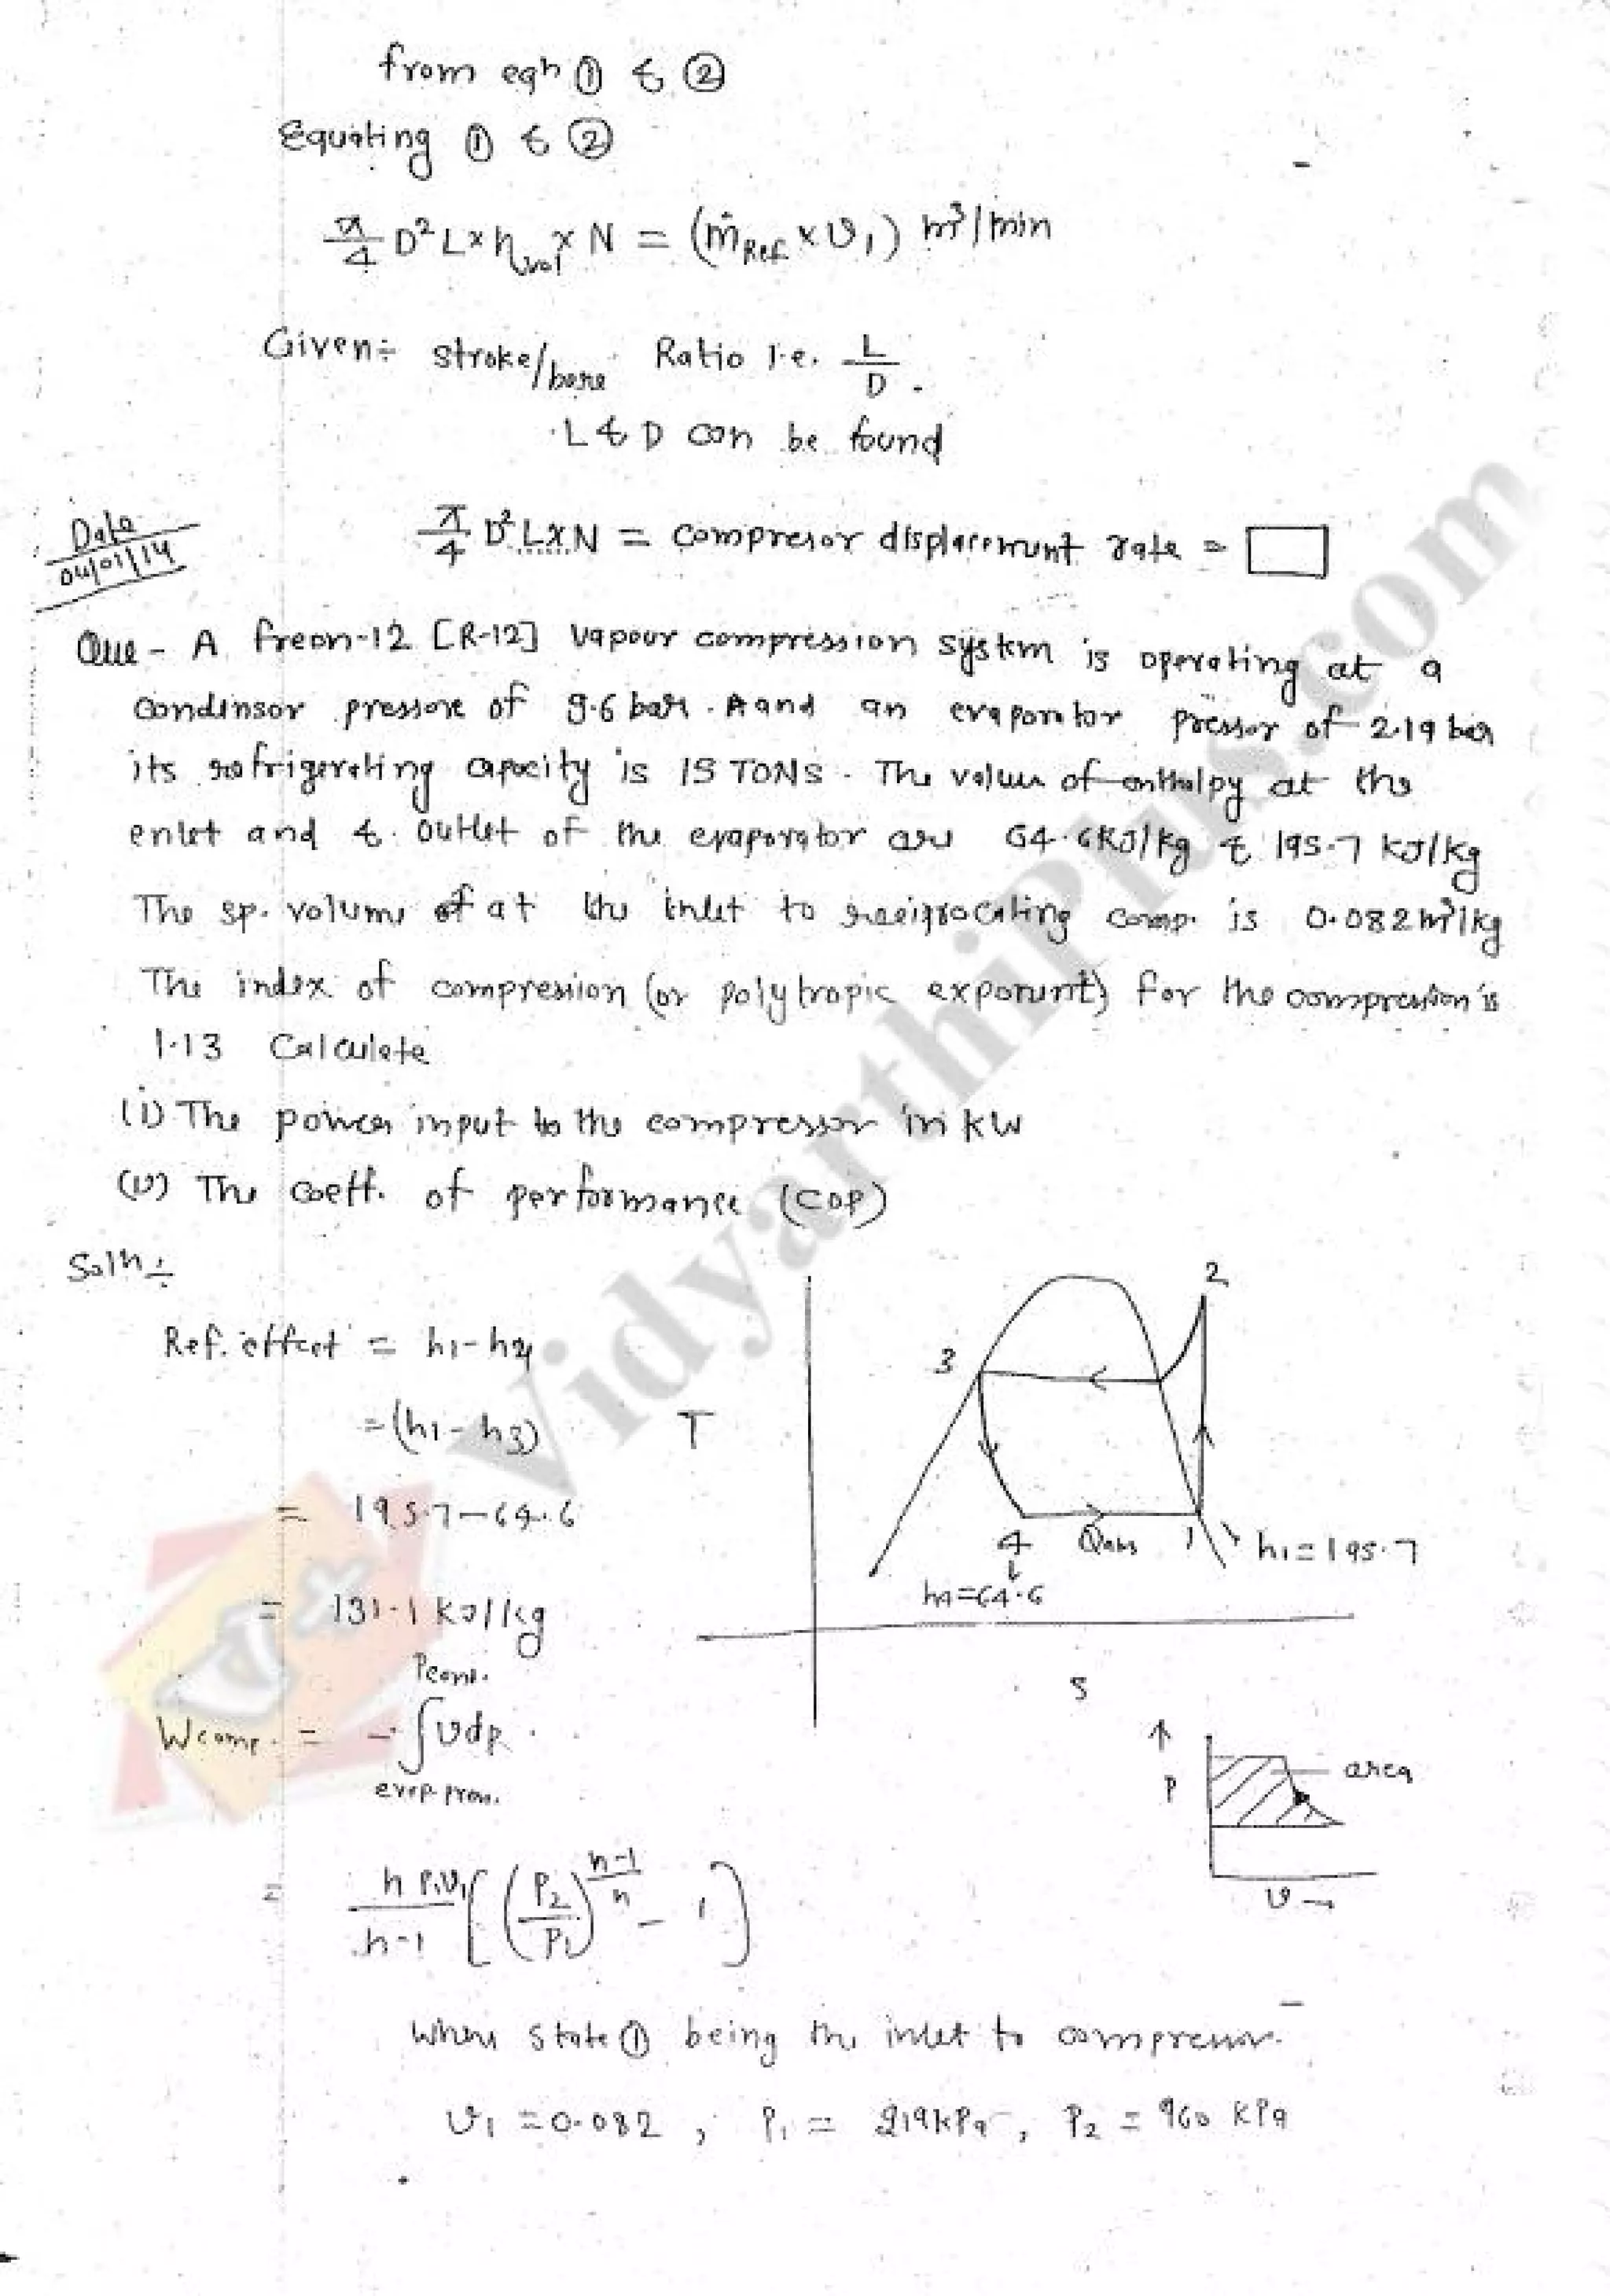 from eqn ① & ②
Equating ① & ②
π/4 D² L × η_vol × N = (ṁ_Ref × υ₁) m³/min
Given÷ stroke/bore Ratio i.e. L/D .
L & D can be found
Date 04/01/14
π/4 D² L × N = compressor displacement rate = □
Que - A freon-12 [R-12] vapour compression system is operating at a
condensor pressure of 9.6 bar. A and an evaporator pressor of 2.19 bar
its refrigerating capacity is 15 TONS. The values of enthalpy at the
enlet and & outlet of the evaporator are 64.6 KJ/kg & 195.7 KJ/kg
The sp. volume of at the inlet to reciprocating comp. is 0.082 m³/kg
The index of compression (or polytropic exponent) for the compression is
1.13 Calculate
(i) The power input to the compressor in kW
(ii) The coeff. of performance (COP)
Soln ÷
Ref. effect = h1 - h4
= (h1 - h3)
= 195.7 - 64.6
= 131.1 KJ/kg
T
2
3
4
Qabs
1
h1 = 195.7
h4 = 64.6
S
Wcomp. = - ∫ υdp .
Pcond.
evep. pres.
P
area
υ →
= n P₁υ₁/n-1 [ (P₂/P₁)^(n-1/n) - 1 ]
where state ① being the inlet to compressor.
υ₁ = 0.082 , P₁ = 219 kPa , P₂ = 960 KPa
VidyarthiPlus.com